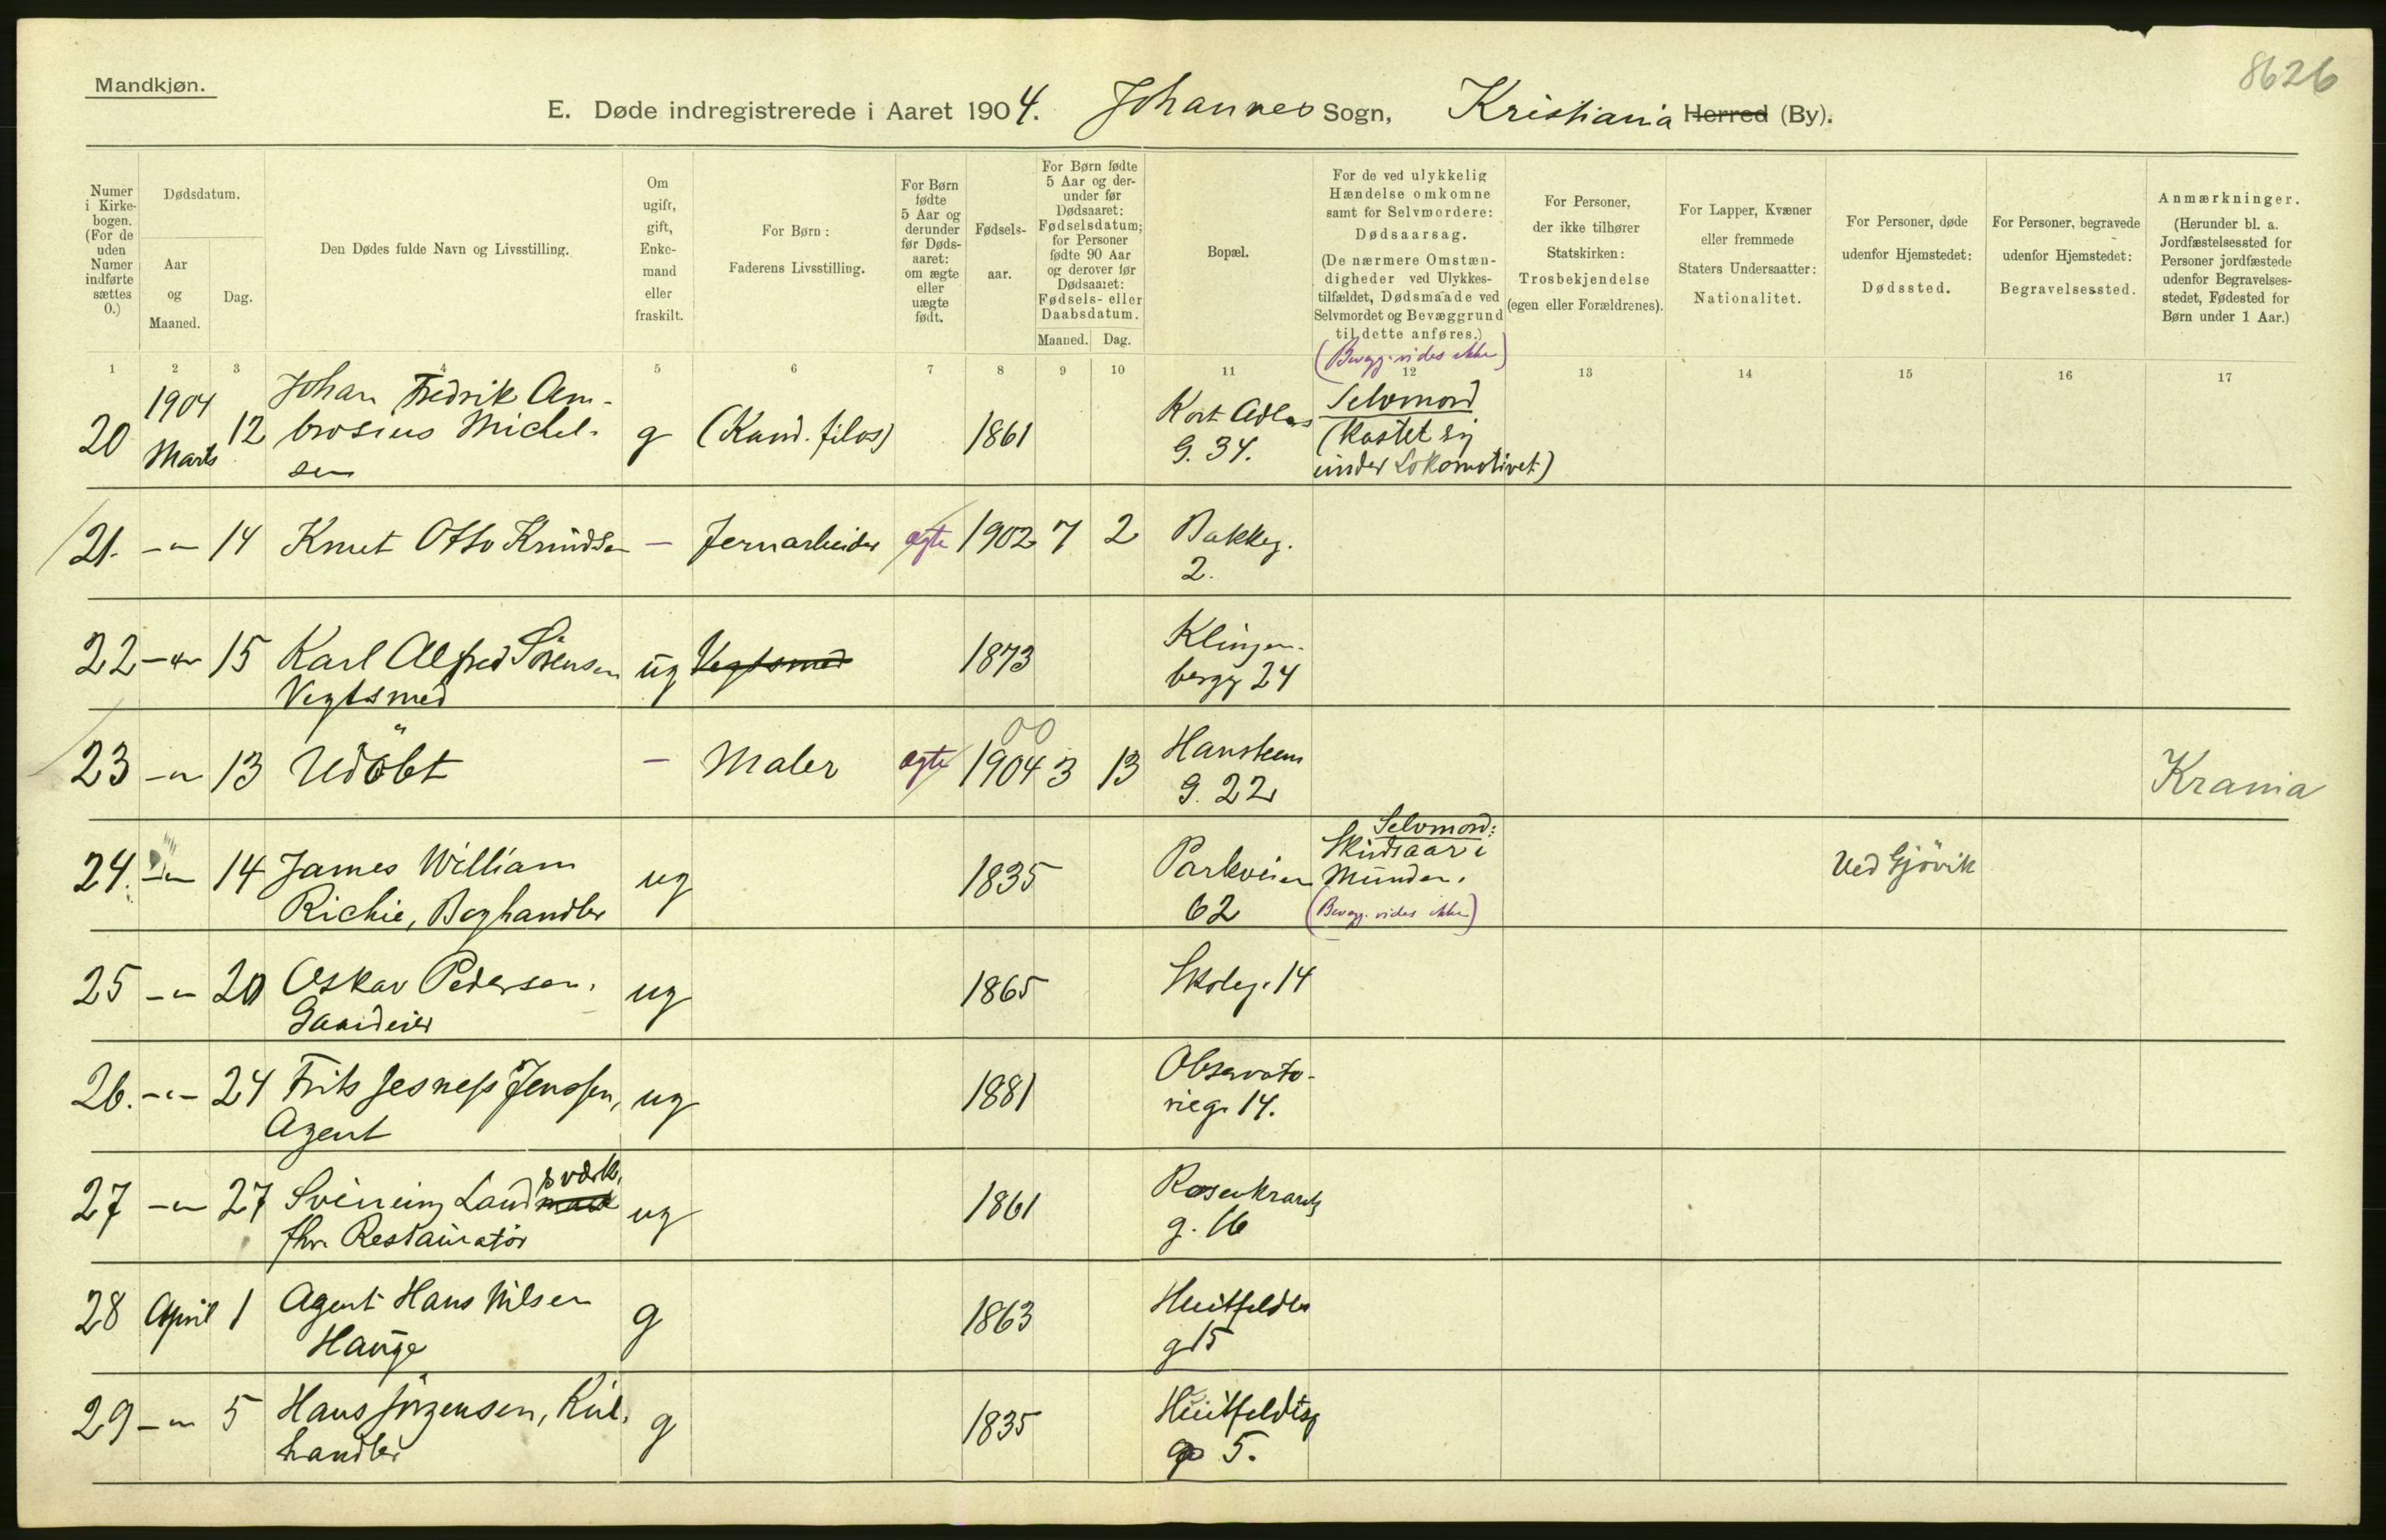 8626
Mandkjøn.
E. Døde indregistrerede i Aaret 1904. Johannes Sogn, Kristiania Herred (By).
Numer i Kirke-bogen. (For de uden Numer indførte sættes 0.)
Dødsdatum.
Aar og Maaned.
Dag.
Den Dødes fulde Navn og Livsstilling.
Om ugift, gift, Enke-mand eller fraskilt.
For Børn: Faderens Livsstilling.
For Børn fødte 5 Aar og derunder før Døds-aaret: om ægte eller uægte født.
Fødsels-aar.
For Børn fødte 5 Aar og der-under før Dødsaaret: Fødselsdatum; for Personer fødte 90 Aar og derover før Dødsaaret: Fødsels- eller Daabsdatum.
Maaned. Dag.
Bopæl.
For de ved ulykkelig Hændelse omkomne samt for Selvmordere: Dødsaarsag. (De nærmere Omstæn-digheder ved Ulykkes-tilfældet, Dødsmaade ved Selvmordet og Bevæggrund til dette anføres.)
For Personer, der ikke tilhører Statskirken: Trosbekjendelse (egen eller Forældrenes).
For Lapper, Kvæner eller fremmede Staters Undersaatter: Nationalitet.
For Personer, døde udenfor Hjemstedet: Dødssted.
For Personer, begravede udenfor Hjemstedet: Begravelsessted.
Anmærkninger. (Herunder bl. a. Jordfæstelsessted for Personer jordfæstede udenfor Begravelses-stedet, Fødested for Børn under 1 Aar.)
1 2 3 4 5 6 7 8 9 10 11 12 13 14 15 16 17
(Bevægg. vides ikke)
1904 Johan Fredrik Am- Kort Adlers Selvmord
20 Marts 12 brosius Michel- g (Kand. filos) 1861 G. 34. (Kastet sig
sen under Lokomotivet)
21. -"- 14 Knut Otto Knudsen - Jernarbeider ægte 1902 7 2 Bakkeg.
2.
22 -"- 15 Karl Alfred Sørensen ug Vegtsmed 1873 Klingen-
Vegtsmed bergg 24
00
23 -"- 13 Udöbt - Maler ægte 1904 3 13 Hansteens Krania
G. 22
Selvmord:
24. -"- 14 James William ug 1835 Parkveien Skudsaar i Ved Gjövik
Richie, Boghandler 62 Munden.
(Bevægg. vides ikke)
25 -"- 20 Oskar Pedersen. ug 1865 Skoleg. 14
Gaardeier
26. -"- 24 Frits Jesness Jenssen, ug 1881 Observato-
Agent rieg. 14.
27 -"- 27 Svenning Landmark ug 1861 Rosenkrantz
fhv. Restauratör g. 16
28 April 1 Agent Hans Nilsen g 1863 Huitfeldts
Hauge g 15
29 -"- 5 Hans Jörgensen, Kul. g 1835 Huitfeldtsg
handler 5.